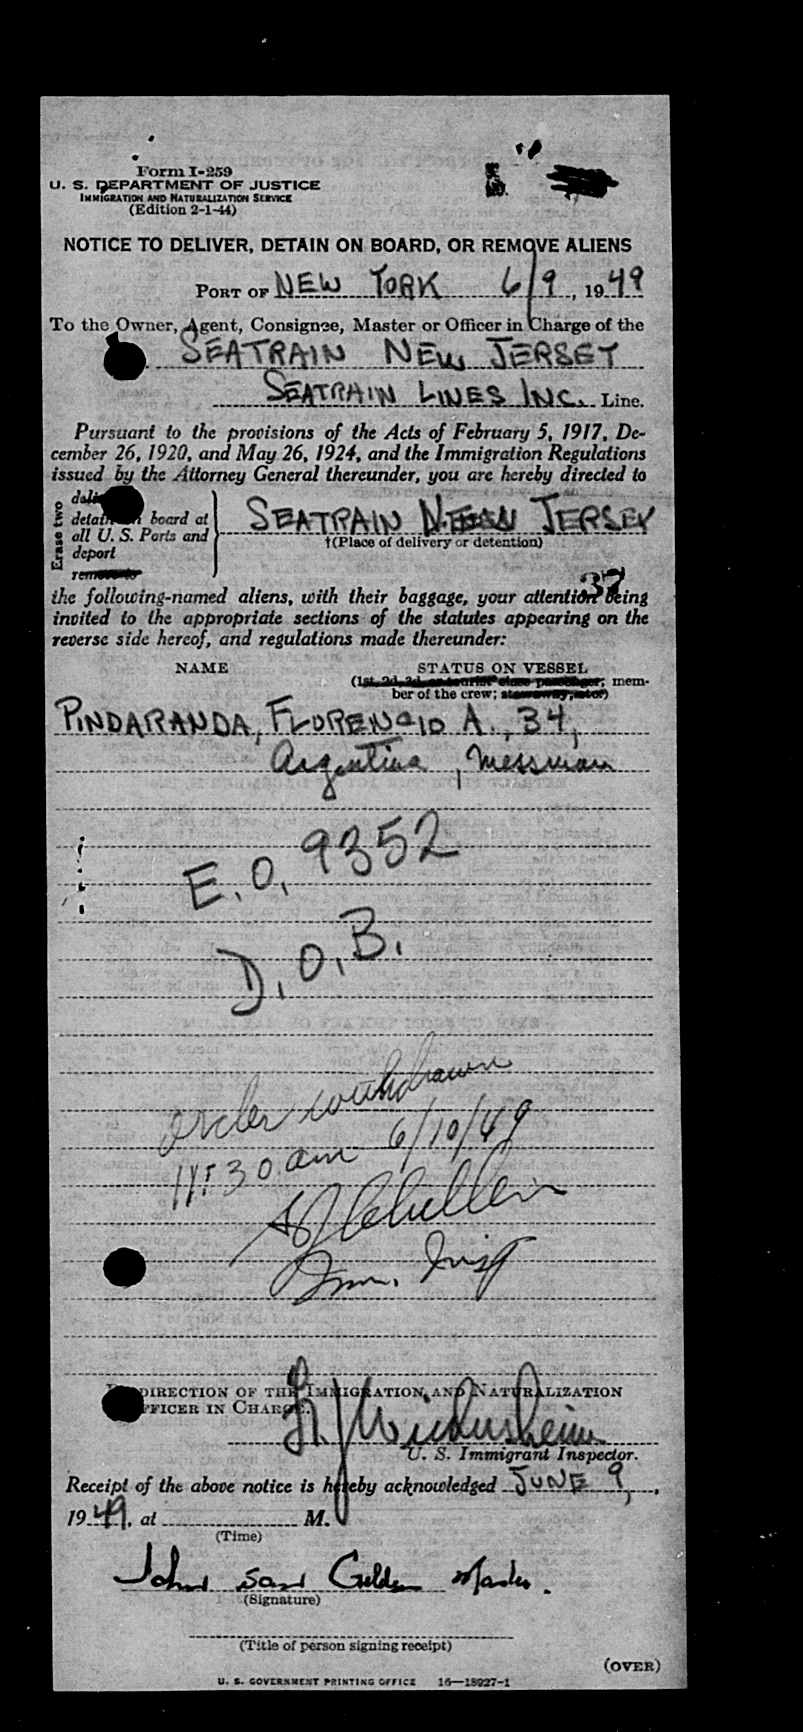 Form I-259
U. S. DEPARTMENT OF JUSTICE
IMMIGRATION AND NATURALIZATION SERVICE
(Edition 2-1-44)
NOTICE TO DELIVER, DETAIN ON BOARD, OR REMOVE ALIENS
PORT OF NEW YORK 6/9, 1949
To the Owner, Agent, Consignee, Master or Officer in Charge of the
SEATRAIN NEW JERSEY
SEATRAIN LINES INC. Line.
Pursuant to the provisions of the Acts of February 5, 1917, De-
cember 26, 1920, and May 26, 1924, and the Immigration Regulations
issued by the Attorney General thereunder, you are hereby directed to
Erase two
detain on board at
all U. S. Ports and
deport
remove to
SEATRAIN NEW JERSEY
†(Place of delivery or detention)
37
the following-named aliens, with their baggage, your attention being
invited to the appropriate sections of the statutes appearing on the
reverse side hereof, and regulations made thereunder:
NAME STATUS ON VESSEL
(1st, 2d, 3d, or tourist class passenger; mem-
ber of the crew; stowaway, etc.)
PINDARANDA, FLORENCIO A., 34,
Argentina, Messman
E.O. 9352
D.O.B.
order withdrawn
11:30 am 6/10/49
Imm. Insp
DIRECTION OF THE IMMIGRATION AND NATURALIZATION
OFFICER IN CHARGE.
U. S. Immigrant Inspector.
Receipt of the above notice is hereby acknowledged JUNE 9,
1949, at M.
(Time)
John Master.
(Signature)
(Title of person signing receipt)
(OVER)
U. S. GOVERNMENT PRINTING OFFICE 16—18927-1